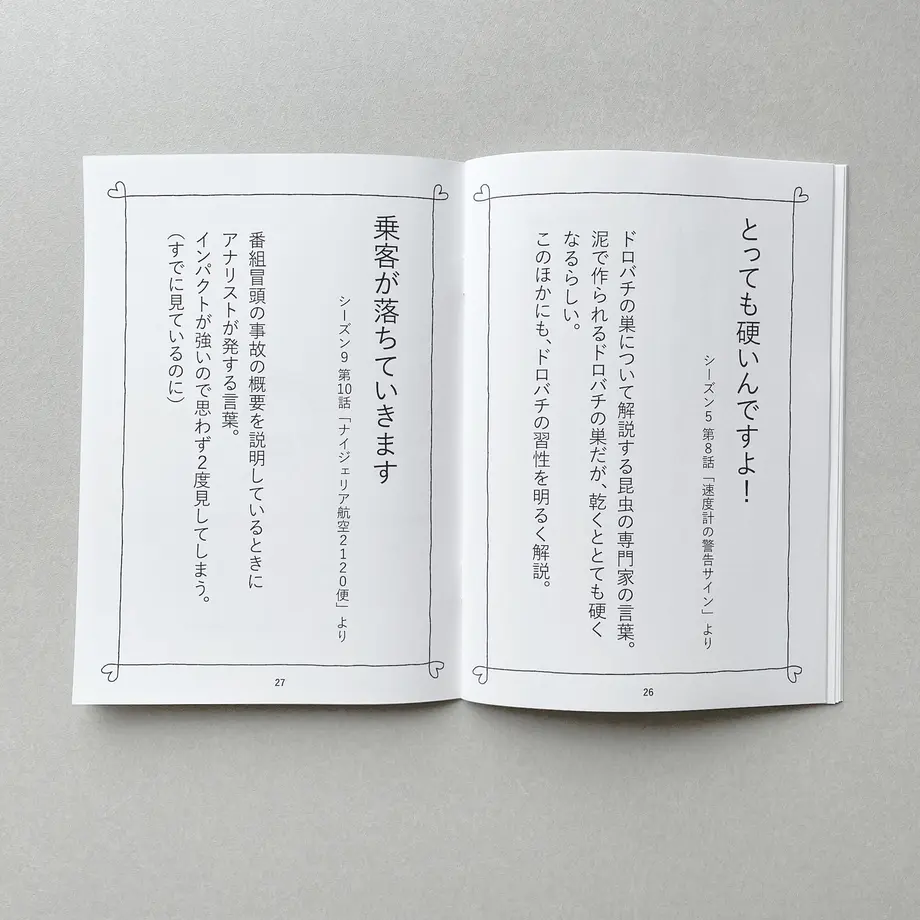 とっても硬いんですよ！
シーズン5 第8話「速度計の警告サイン」より
ドロバチの巣について解説する昆虫の専門家の言葉。
泥で作られるドロバチの巣だが、乾くととても硬く
なるらしい。
このほかにも、ドロバチの習性を明るく解説。
26
乗客が落ちていきます
シーズン9 第10話「ナイジェリア航空2120便」より
番組冒頭の事故の概要を説明しているときに
アナリストが発する言葉。
インパクトが強いので思わず2度見してしまう。
（すでに見ているのに）
27